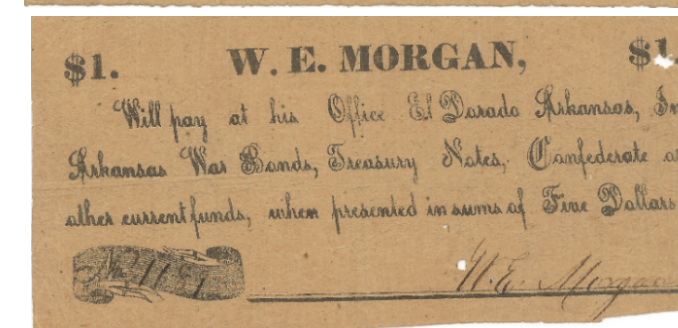 $1. W. E. MORGAN, $1.
Will pay at his Office El Dorado Arkansas, In
Arkansas War Bonds, Treasury Notes, Confederate
other current funds, when presented in sums of Five Dollars
W. E. Morgan